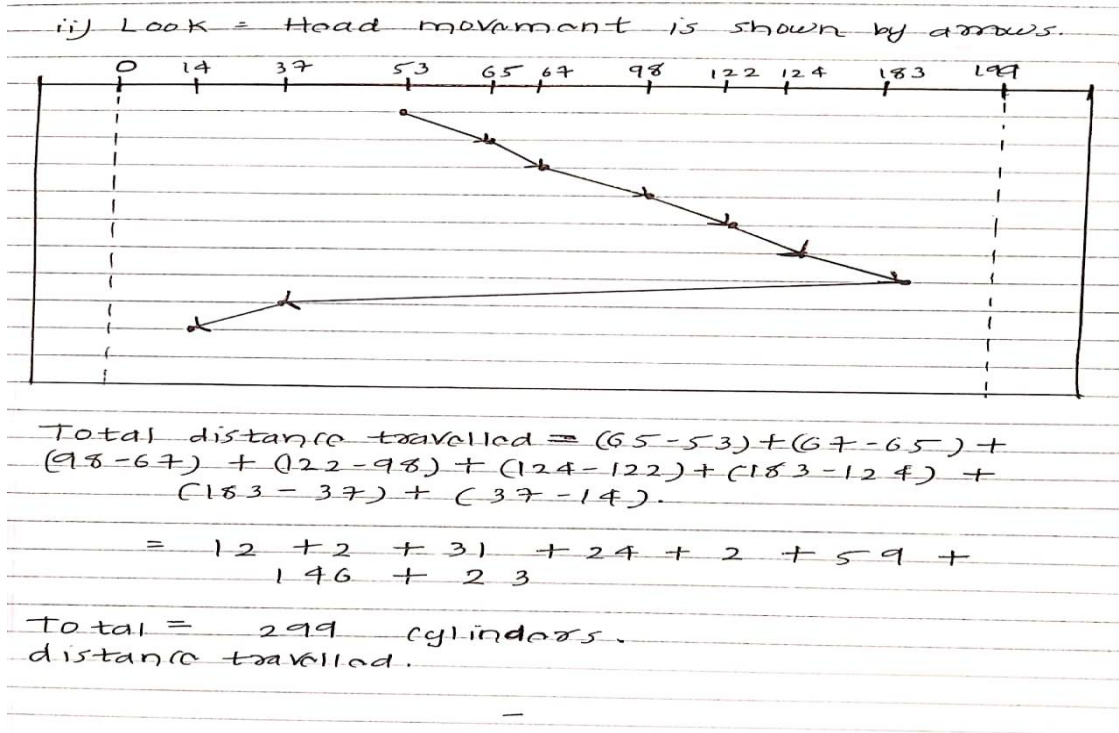 ii) Look = Head movement is shown by arrows.
0 14 37 53 65 67 98 122 124 183 199
Total distance travelled = (65-53)+(67-65)+
(98-67) + (122-98) + (124-122)+(183-124) +
(183-37) + (37-14).
= 12 +2 + 31 + 24 + 2 + 59 +
146 + 23
Total = 299 cylinders.
distance travelled.